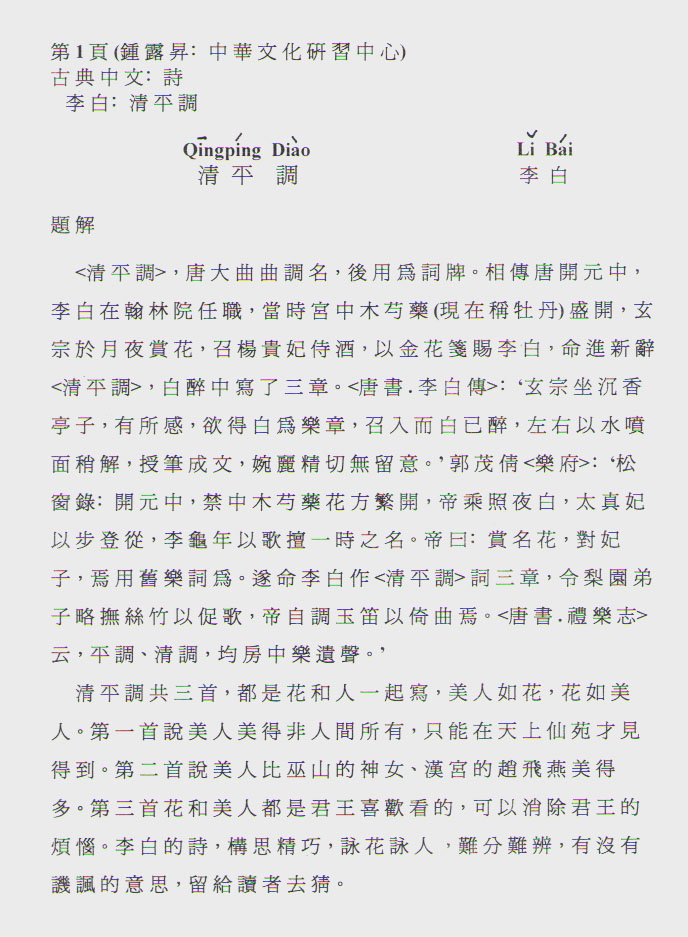 第1頁(鍾露昇: 中華文化研習中心)
古典中文: 詩
李白: 清平調
Qīngpíng Diào Lǐ Bái
清平調 李白
題解
<清平調>，唐大曲曲調名，後用爲詞牌。相傳唐開元中，
李白在翰林院任職，當時宮中木芍藥(現在稱牡丹)盛開，玄
宗於月夜賞花，召楊貴妃侍酒，以金花箋賜李白，命進新辭
<清平調>，白醉中寫了三章。<唐書.李白傳>: ‘玄宗坐沉香
亭子，有所感，欲得白爲樂章，召入而白已醉，左右以水噴
面稍解，授筆成文，婉麗精切無留意。’郭茂倩<樂府>: ‘松
窗錄: 開元中，禁中木芍藥花方繁開，帝乘照夜白，太真妃
以步登從，李龜年以歌擅一時之名。帝曰: 賞名花，對妃
子，焉用舊樂詞爲。遂命李白作<清平調>詞三章，令梨園弟
子略撫絲竹以促歌，帝自調玉笛以倚曲焉。<唐書.禮樂志>
云，平調、清調，均房中樂遺聲。’
清平調共三首，都是花和人一起寫，美人如花，花如美
人。第一首說美人美得非人間所有，只能在天上仙苑才見
得到。第二首說美人比巫山的神女、漢宮的趙飛燕美得
多。第三首花和美人都是君王喜歡看的，可以消除君王的
煩惱。李白的詩，構思精巧，詠花詠人，難分難辨，有沒有
譏諷的意思，留給讀者去猜。